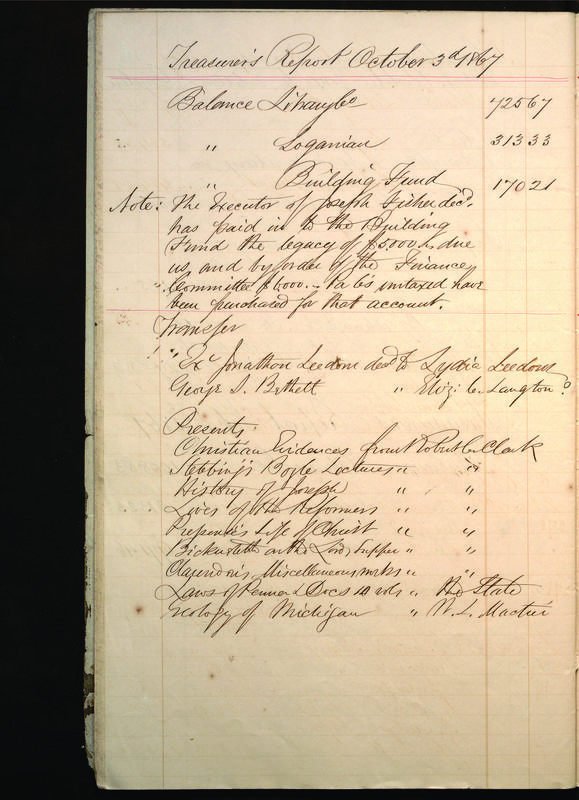 Treasurer's Report October 3d 1867
Balance Library Co 72567
" Loganian 31333
" Building Fund 17021
Note: The Executor of Joseph Fisher decd.
has paid in to the Building
Fund the legacy of $5,000 due
us, and by order of the Finance
Committee $6,000.. Pa 6s untaxed have
been purchased for that account.
Transfer
" Exr Jonathan Leedom decd to Lydia Leedom
George S. Bethell " Eliz: C. Langton
Presents.
Christian Evidences from Robert C. Clark
Stebbing's Boyle Lectures " "
History of Joseph " "
Lives of the Reformers " "
Life of Christ " "
Bickersteth on the Lords Supper " "
Clarendon's Miscellaneous works " "
Laws of Penna & Docs 10 vols " the State
Geology of Michigan " W. L. Mactier